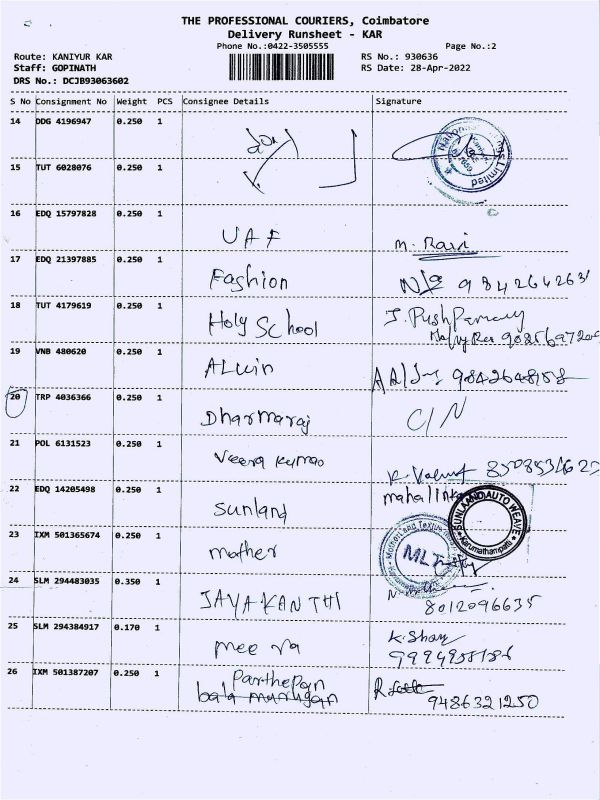 THE PROFESSIONAL COURIERS, Coimbatore
Delivery Runsheet - KAR
Phone No.:0422-3505555
Page No.:2
Route: KANIYUR KAR
RS No.: 930636
Staff: GOPINATH
RS Date: 28-Apr-2022
DRS No.: DCJB93063602
S No Consignment No Weight PCS Consignee Details Signature
14 DDG 4196947 0.250 1
15 TUT 6028076 0.250 1
16 EDQ 15797828 0.250 1
UAF M. Ravi
17 EDQ 21397885 0.250 1
Fashion
18 TUT 4179619 0.250 1
Holy School
19 VNB 480620 0.250 1
Alwin 9842648158
20 TRP 4036366 0.250 1
Dharmaraj C/N
21 POL 6131523 0.250 1
Veera Kumar
22 EDQ 14205498 0.250 1
Sunland
SUNLAAND AUTO WEAVE
Karumathampatti
23 IXM 501365674 0.250 1
mother
ML
24 SLM 294483035 0.350 1
JAYAKANTHI 8012096635
25 SLM 294384917 0.170 1
meera
26 IXM 501387207 0.250 1
bala murugan
9486321250